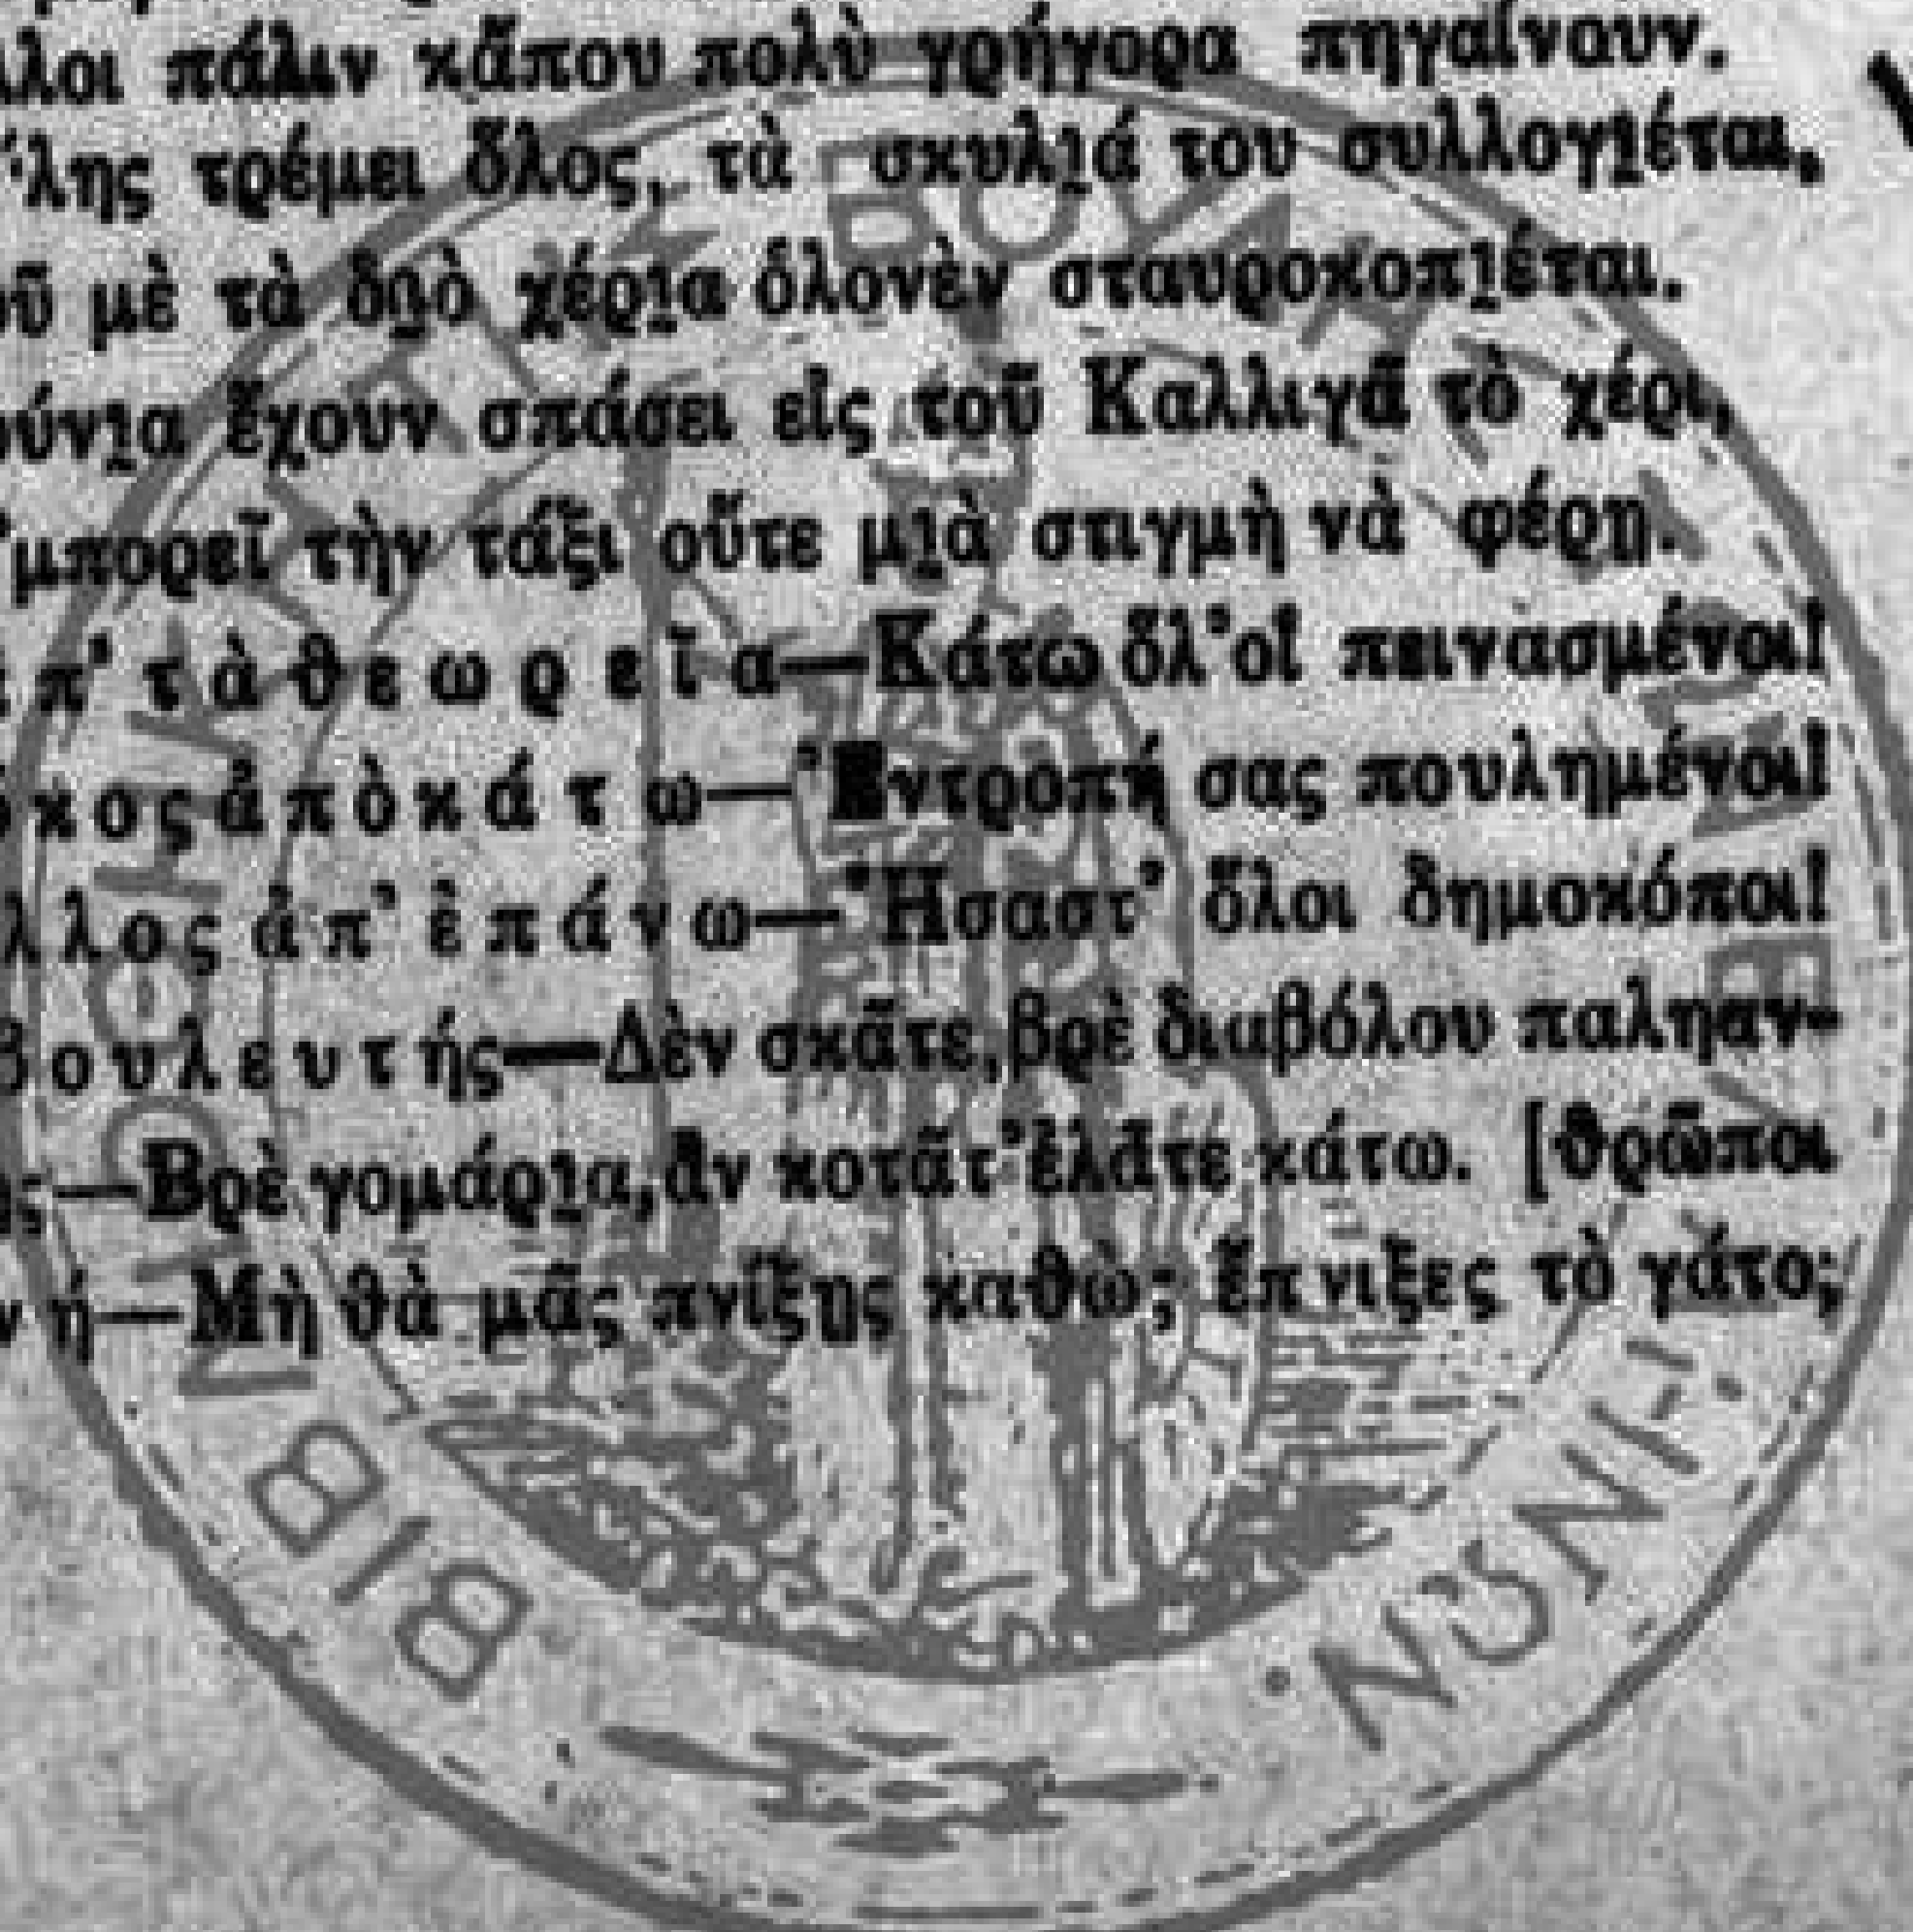 πάλιν κἄπου πολὺ γρήγορα πηγαίνουν.
τρέμει ὅλος, τὰ σκυλιά του συλλογιέται,
μὲ τὰ δυὸ χέρια ὁλονὲν σταυροκοπιέται.
ἔχουν σπάσει εἰς τοῦ Καλλιγᾶ τὸ χέρι,
'μπορεῖ τὴν τάξι οὔτε μιὰ στιγμὴ νὰ φέρῃ.
π' τὰ θεωρεῖα—Κάτω ὅλ' οἱ πεινασμένοι!
ἀπὸ κάτω—Ἐντροπή σας πουλημένοι!
ἀπ' ἐπάνω—Ἤσαστ' ὅλοι δημοκόποι!
βουλευτής—Δὲν σκᾶτε, βρὲ διαβόλου παληαν-
—Βρὲ γομάρια, ἂν κοτᾶτ' ἐλᾶτε κάτω. [θρῶποι
—Μὴ θὰ μᾶς πνίξῃς καθὼς ἔπνιξες τὸ γάτο;
ΒΙΒΒΙ